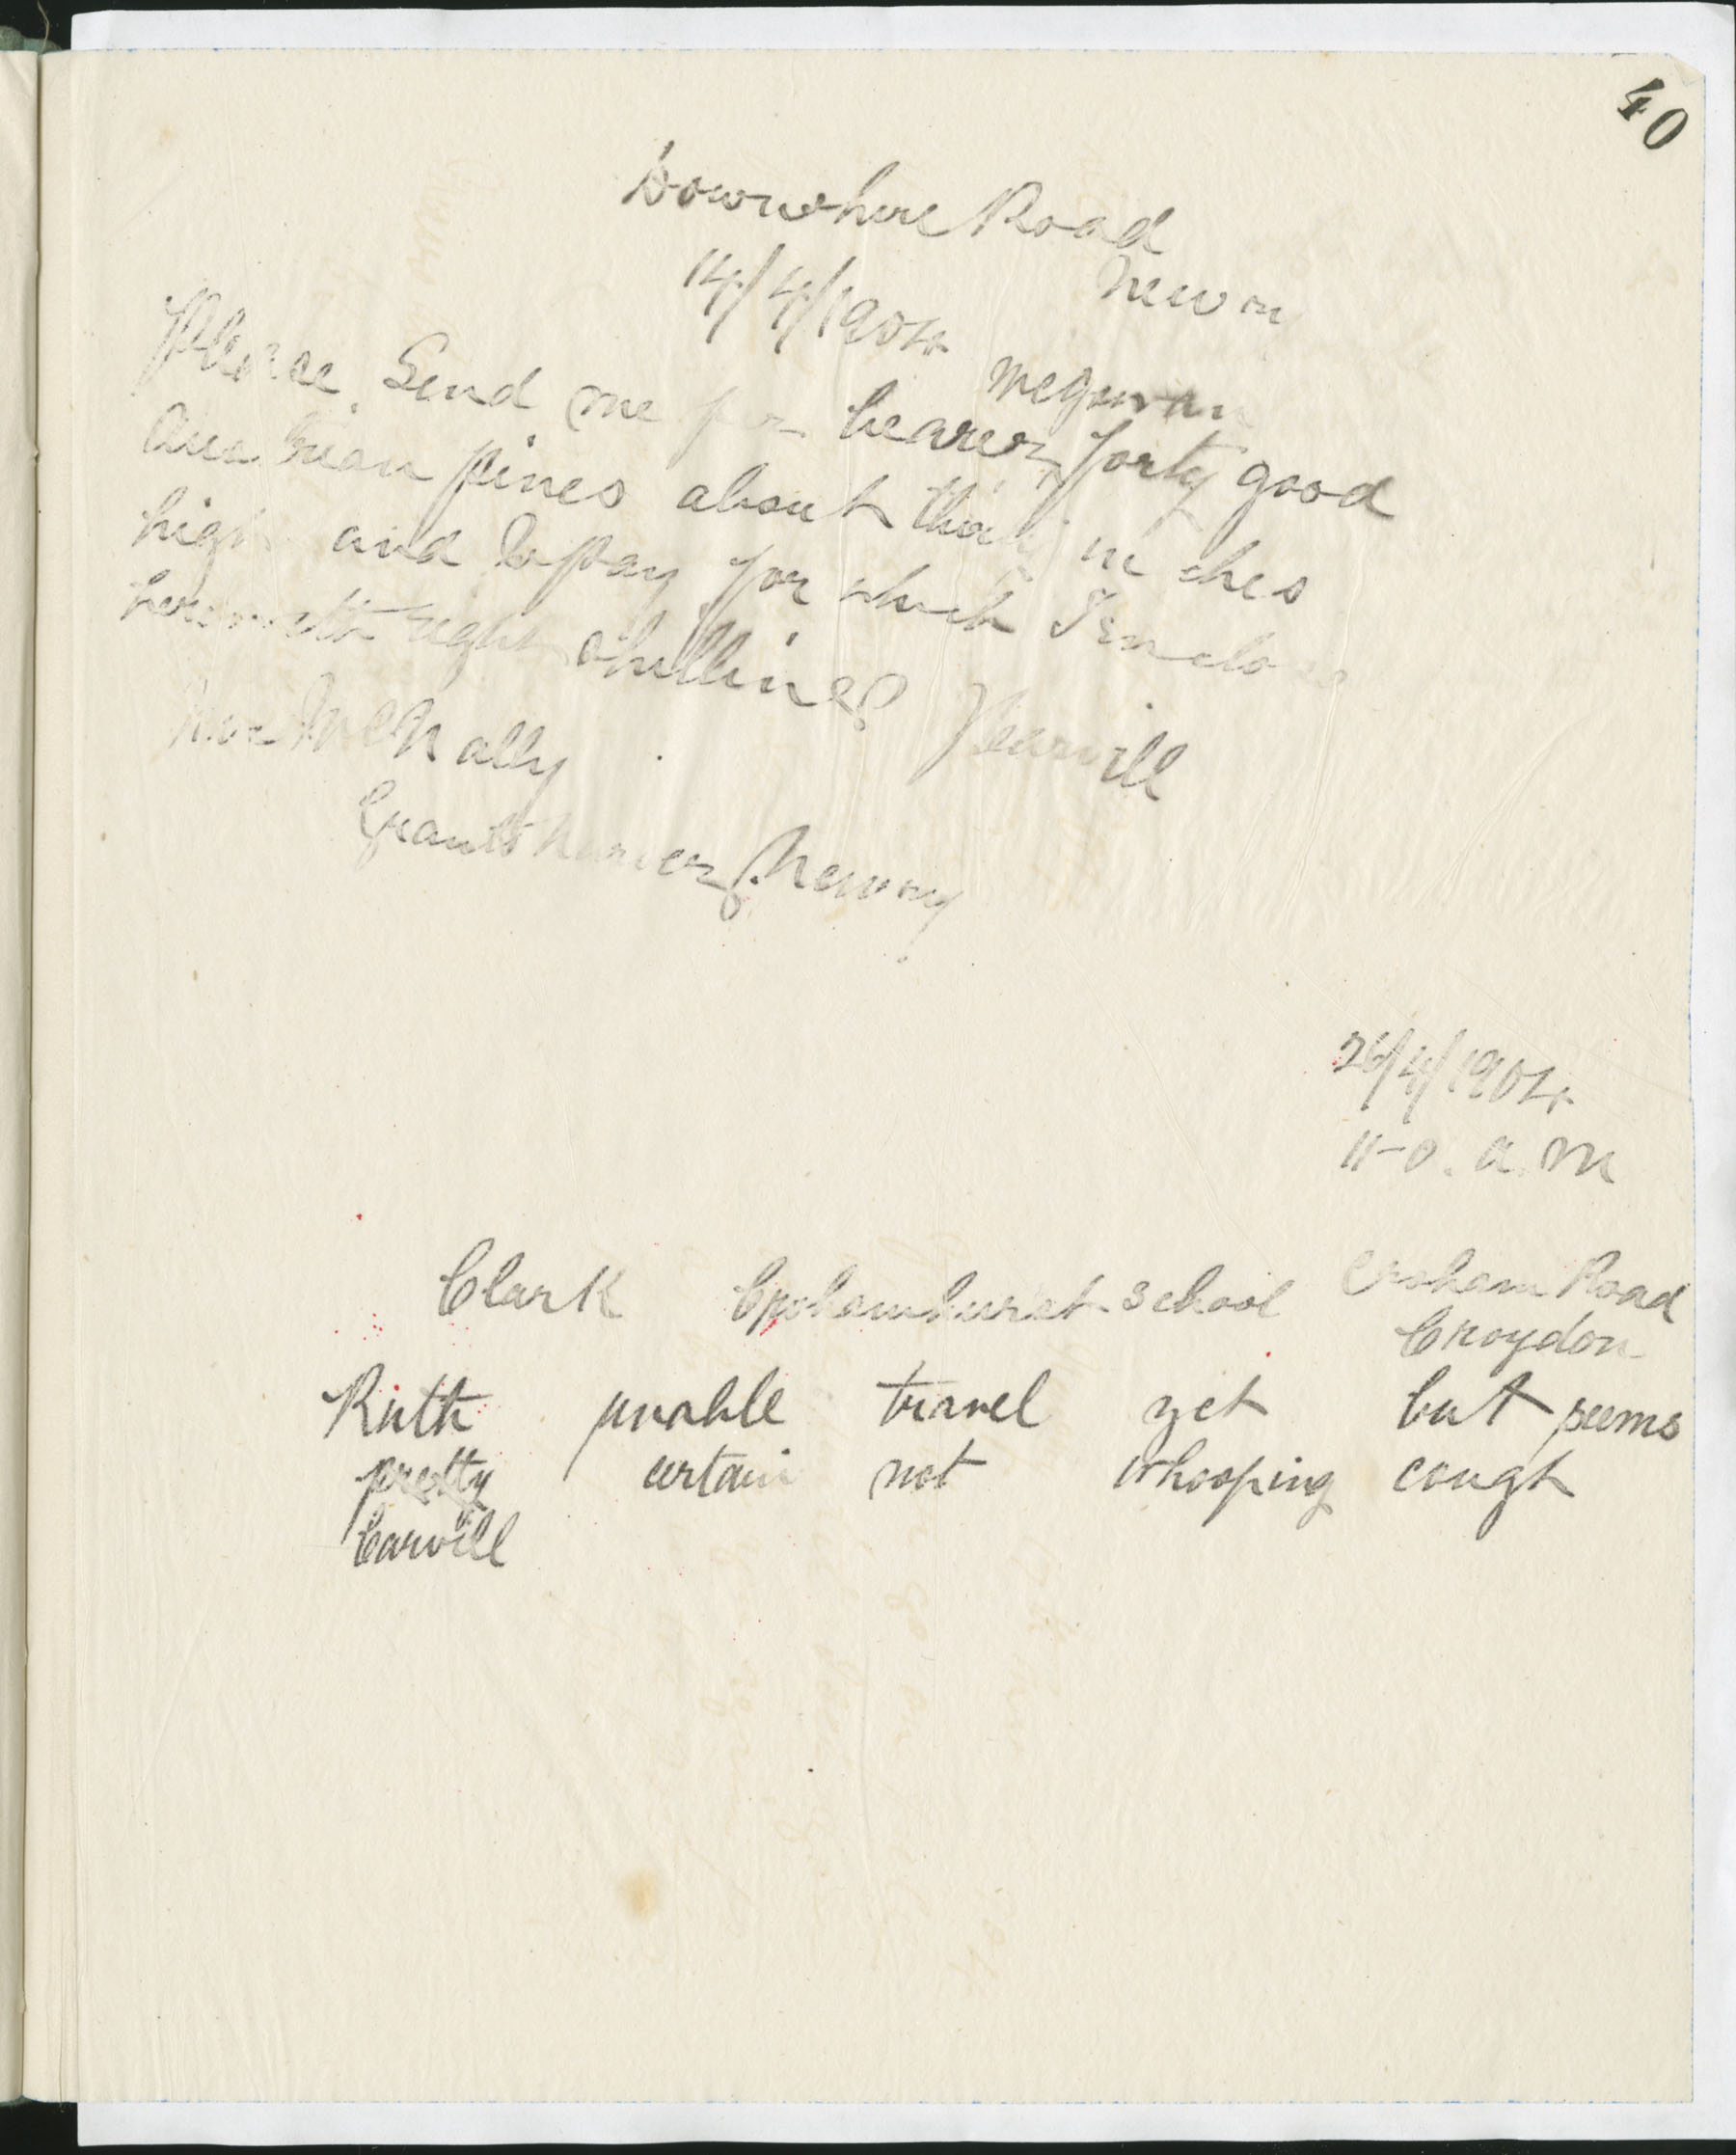 40
Downshire Road
Newry
14/4/1904
Please Send me per bearer forty good
Austrian pines about thirty inches
high and to pay for which I enclose
herewith eight shillings
McNally
Grants Nursery Newry
26/4/1904
11-0. a.m
Clark Crohamhurst School Croham Road
Croydon
Ruth unable travel yet but seems
pretty certain not whooping cough
Carvill